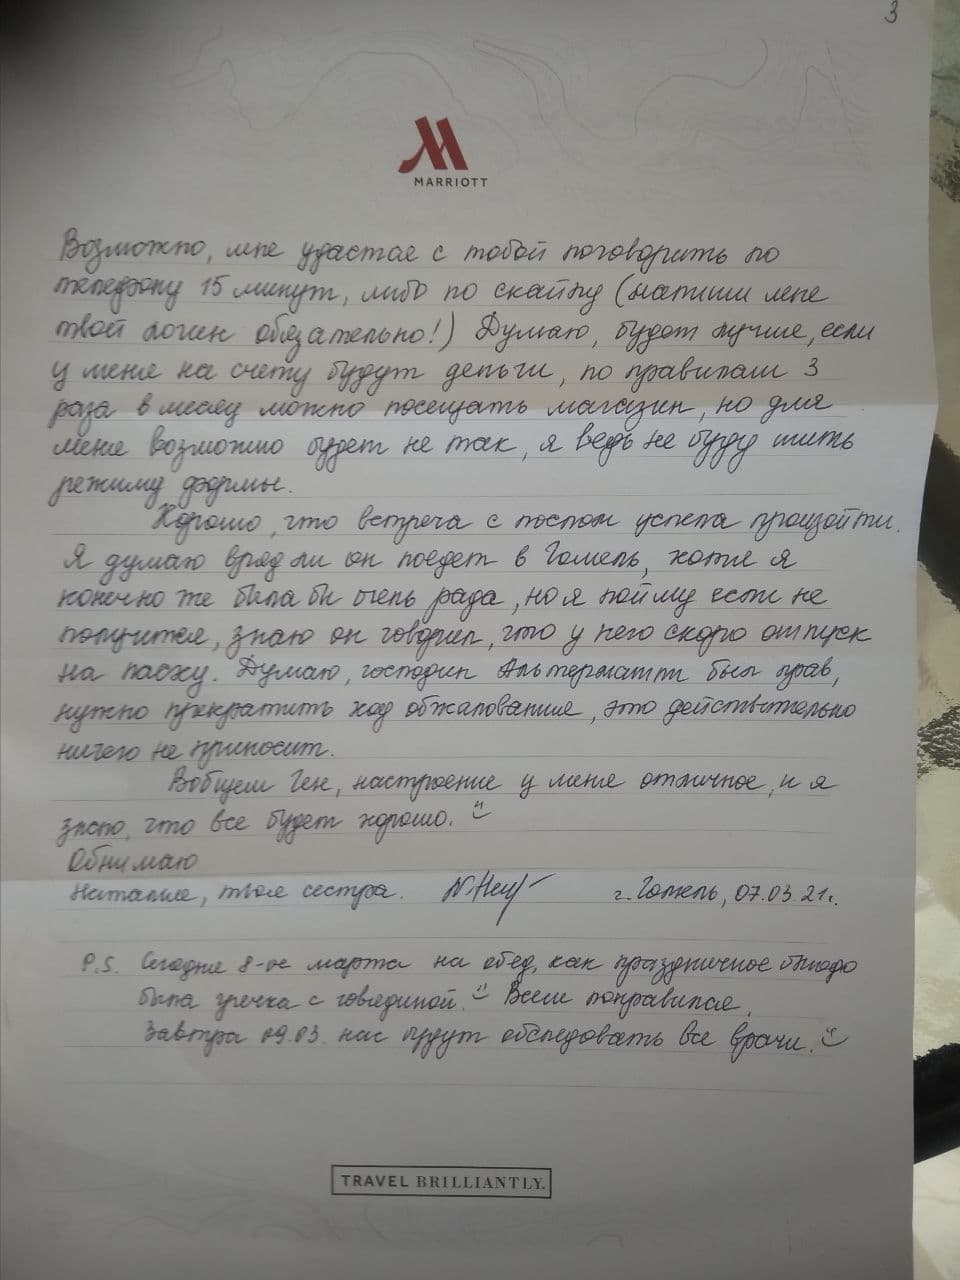 3
MARRIOTT
Возможно, мне удастся с тобой поговорить по
телефону 15 минут, либо по скайпу (напиши мне
твой логин обязательно!) Думаю, будет лучше, если
у меня на счету будут деньги, по правилам 3
раза в месяц можно посещать магазин, но для
меня возможно будет не так, я ведь не буду шить
режиму формы.
Хорошо, что встреча с послом успела произойти.
Я думаю вряд ли он поедет в Гомель, хотя я
конечно же была бы очень рада, но я пойму если не
получится, знаю он говорил, что у него скоро отпуск
на пасху. Думаю, господин Альтерматт был прав,
нужно прекратить ход обжалования, это действительно
ничего не приносит.
Вобщем Ген, настроение у меня отличное, и я
знаю, что все будет хорошо.
Обнимаю
Наталия, твоя сестра. г. Гомель, 07.03.21г.
P.S. Сегодня 8-ое марта на обед, как праздничное блюдо
была гречка с говядиной. Всем понравился.
Завтра 09.03. нас будут обследовать все врачи.
TRAVEL BRILLIANTLY.